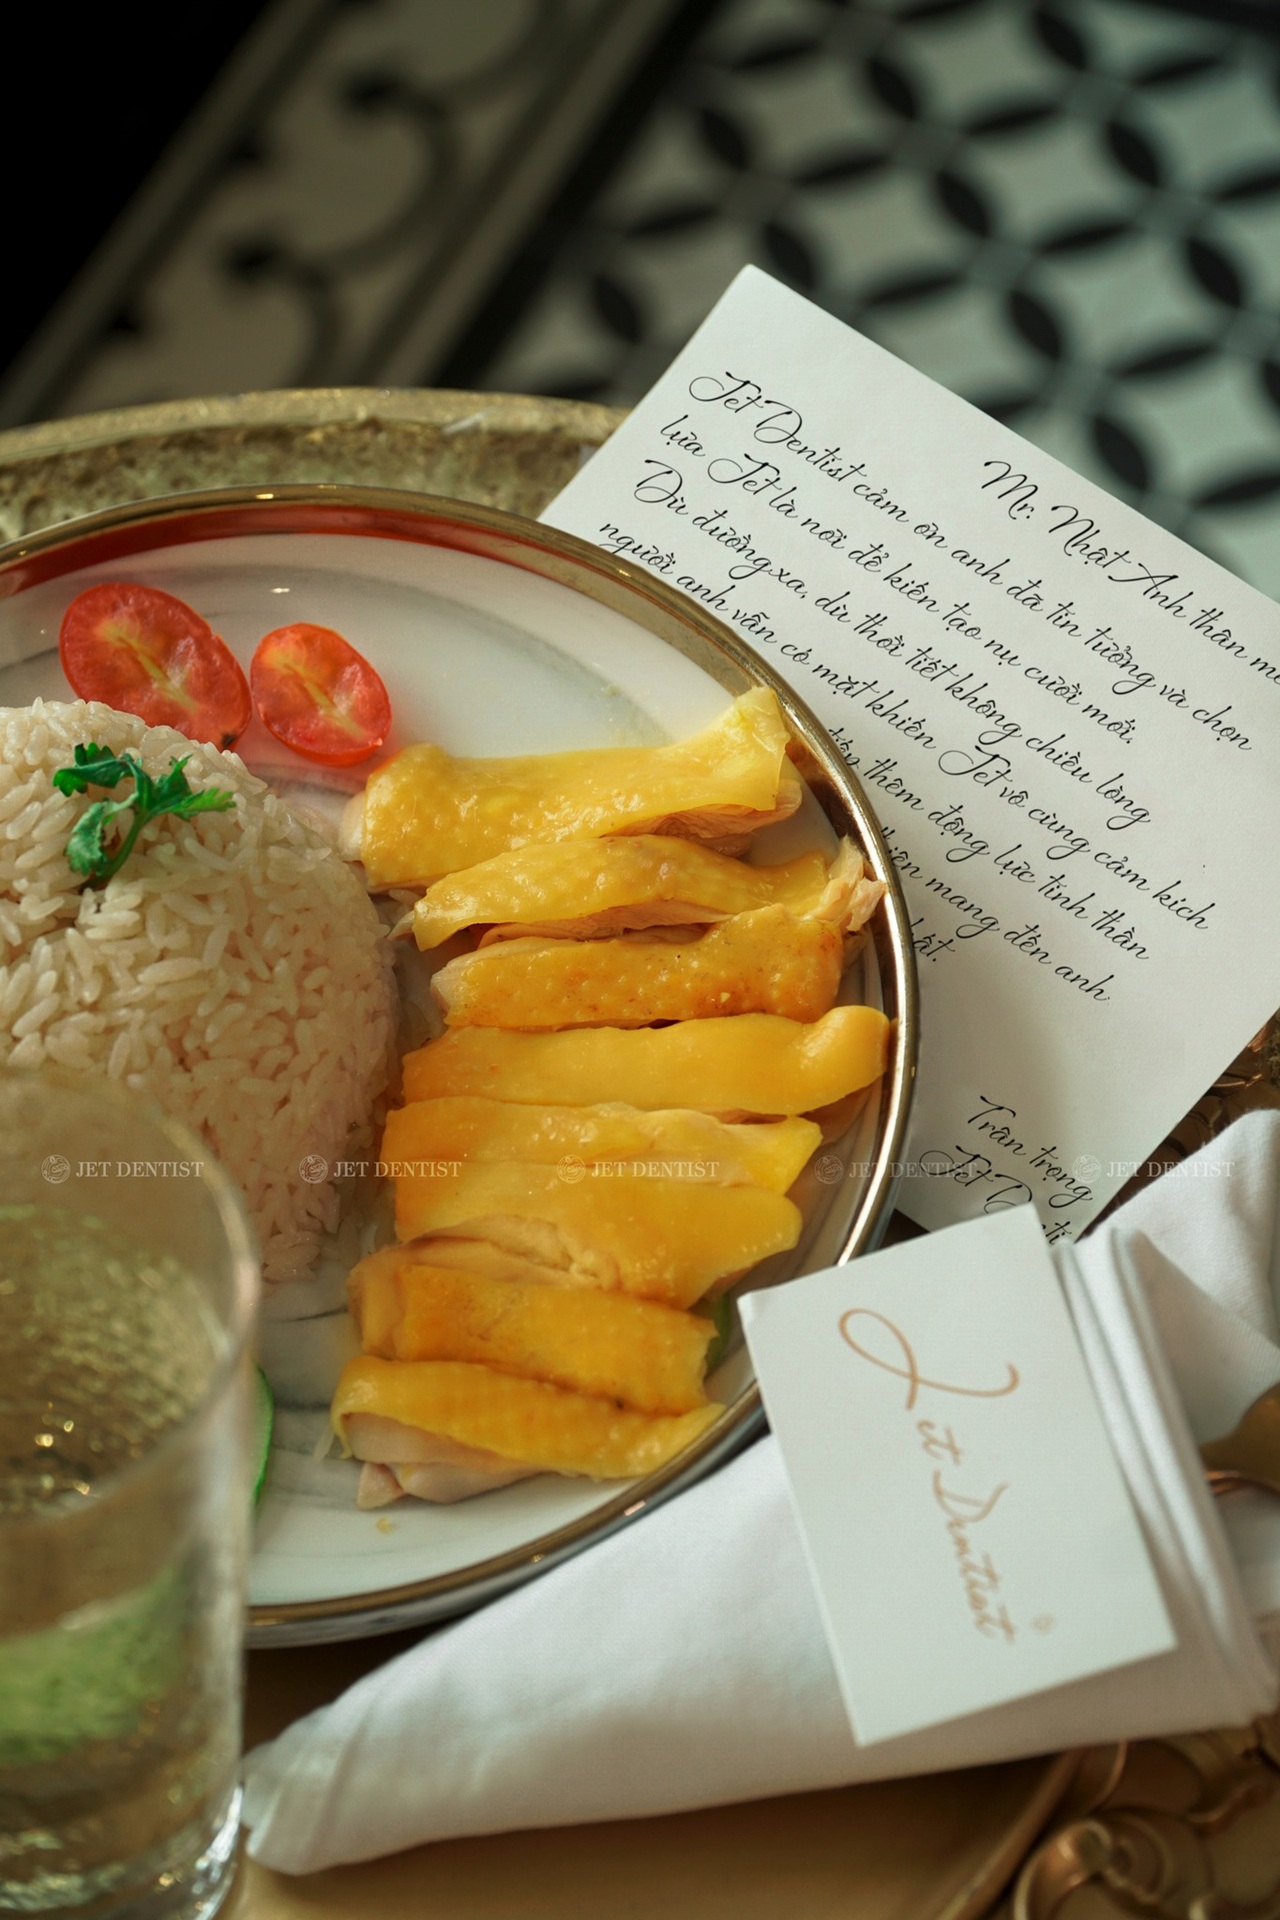 Mr. Nhật Anh thân
Jet Dentist cảm ơn anh đã tin tưởng và chọn
lựa Jet là nơi để kiến tạo nụ cười mới.
Dù đường xa, dù thời tiết không chiều lòng
người anh vẫn có mặt khiến Jet vô cùng cảm kích
thêm động lực tinh thần
mang đến anh
Trân trọng
Jet
Jet Dentist
JET DENTIST JET DENTIST JET DENTIST JET DENTIST JET DENTIST